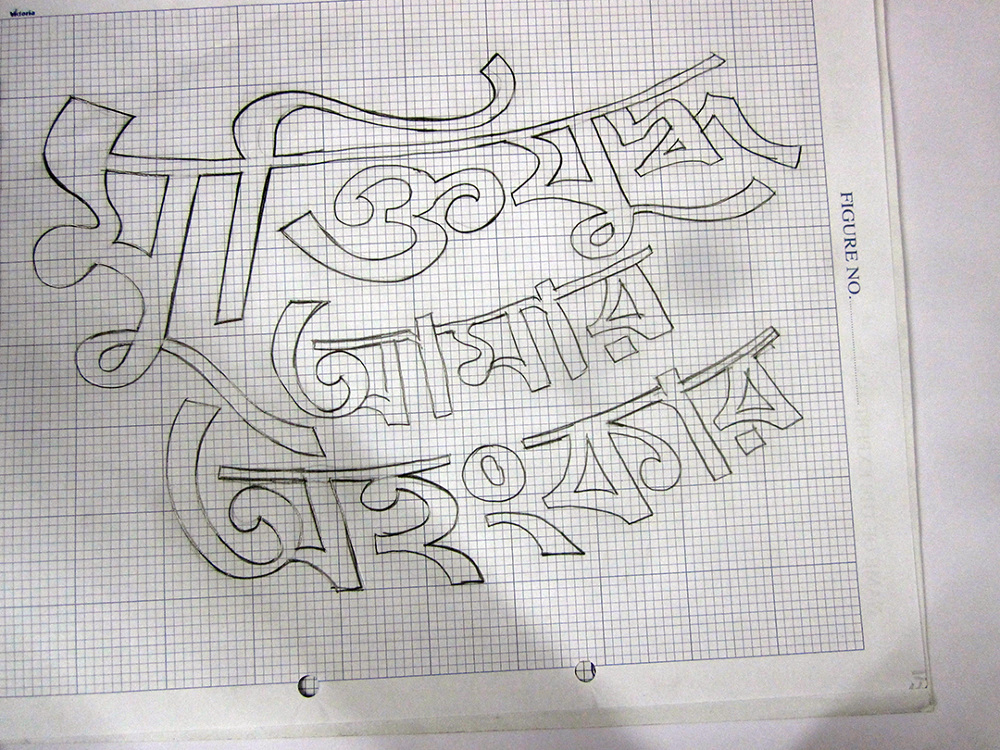 Victoria
মুক্তিযুদ্ধ
আমার
অহংকার
FIGURE NO.